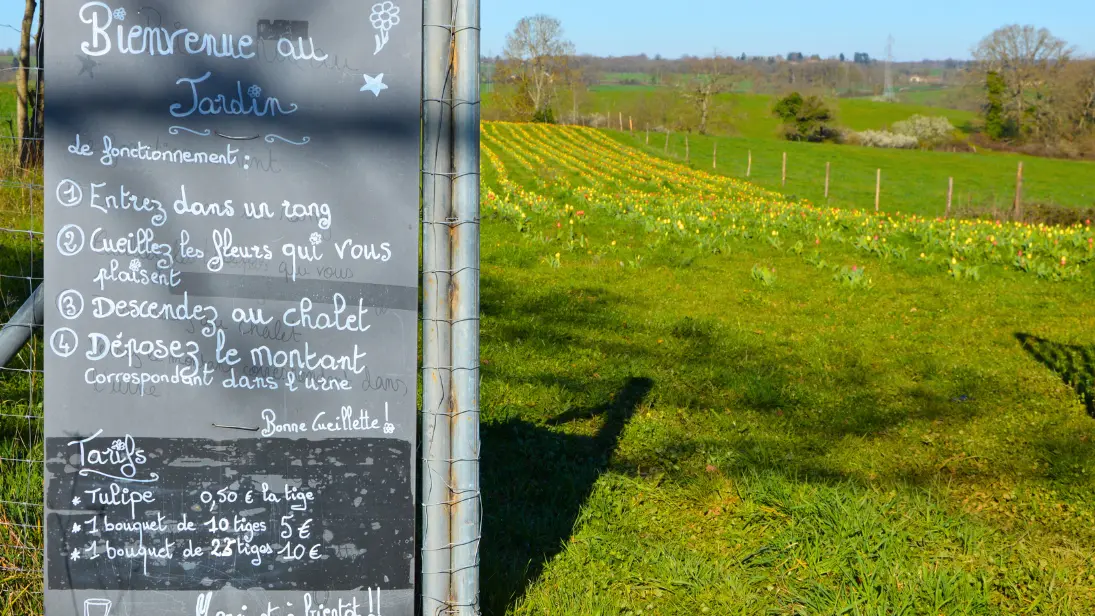 Bienvenue au
Jardin
de fonctionnement :
① Entrez dans un rang
② Cueillez les fleurs qui vous
plaisent
③ Descendez au chalet
④ Déposez le montant
Correspondant dans l'urne
Bonne Cueillette !
Tarifs
* Tulipe 0,50 € la tige
* 1 bouquet de 10 tiges 5 €
* 1 bouquet de 25 tiges 10 €
Merci et à bientôt !!